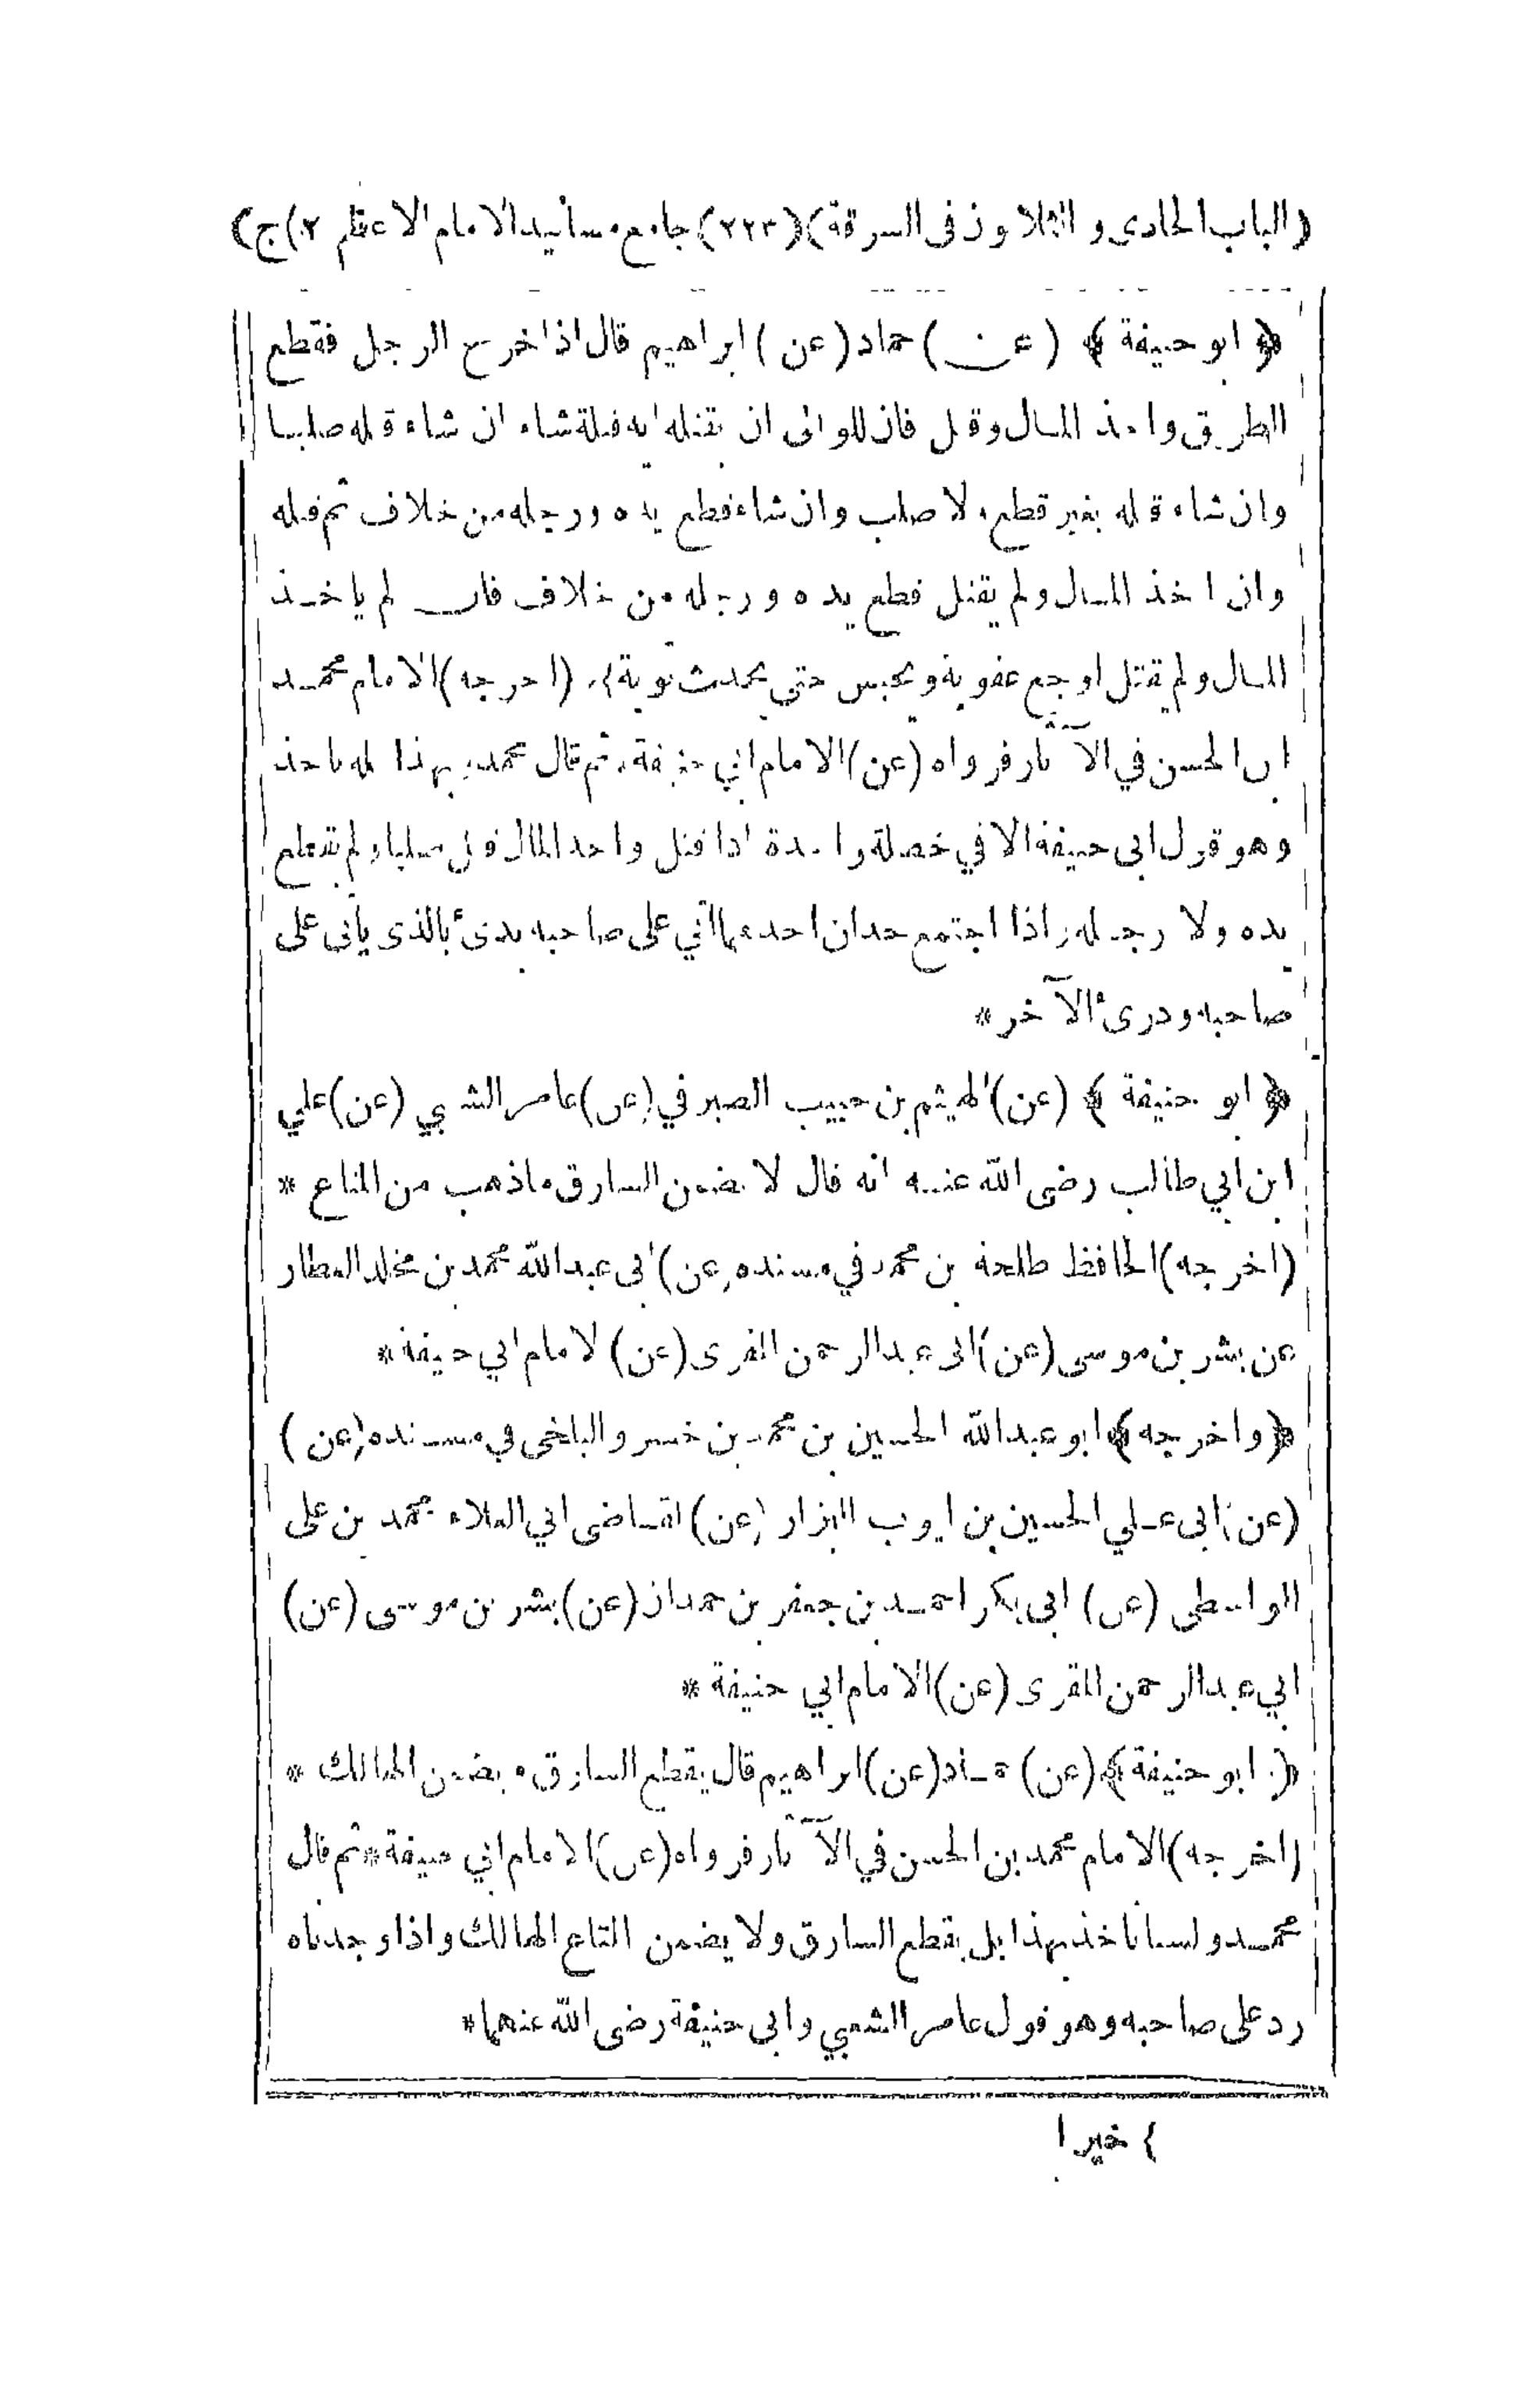 (الباب الحادى والثلاثون فى السرقة) (٢٢٣) جامع مسانيد الامام الاعظم ٢) ج)
﴿ ابو حنيفة ﴾ (عن) حماد (عن) ابراهيم قال اذا خرج الرجل فقطع
الطريق واخذ المال وقتل فان للوالى ان يقتله اية قتلة شاء ان شاء قتله صلبا
وان شاء قتله بغير قطع ولا صلب وان شاء قطع يده ورجله من خلاف ثم قتله
وان اخذ المال ولم يقتل قطع يده ورجله من خلاف فان لم ياخذ
المال ولم يقتل اوجع عقوبة ويحبس حتى يحدث توبة (اخرجه) الامام محمد
ابن الحسن في الآثار فرواه (عن) الامام ابي حنيفة ثم قال محمد بهذا كله ناخذ
وهو قول ابى حنيفة الا في خصلة واحدة اذا قتل واخذ المال قتل صلبا ولم تقطع
يده ولا رجله واذا اجتمع حدان احدهما اتي على صاحبه بدئ بالذى يأتى على
صاحبه ودرئ الآخر *
﴿ ابو حنيفة ﴾ (عن) الهيثم بن حبيب الصيرفي (عن) عامر الشعبي (عن) علي
ابن ابي طالب رضى الله عنه انه قال لا يضمن السارق ما ذهب من المتاع *
(اخرجه) الحافظ طلحة بن محمد في مسنده (عن) ابى عبد الله محمد بن مخلد العطار
عن بشر بن موسى (عن) ابى عبد الرحمن المقرى (عن) الامام ابي حنيفة *
﴿واخرجه﴾ ابو عبد الله الحسين بن محمد بن خسرو البلخى في مسنده (عن)
(عن) ابى علي الحسين بن ايوب البزار (عن) القاضى ابي العلاء محمد بن على
الواسطى (عن) ابى بكر احمد بن جعفر بن حمدان (عن) بشر بن موسى (عن)
ابي عبد الرحمن المقرى (عن) الامام ابي حنيفة *
﴿ ابو حنيفة ﴾ (عن) حماد (عن) ابراهيم قال يقطع السارق ويضمن الهالك *
(اخرجه) الامام محمد بن الحسن في الآثار فرواه (عن) الامام ابي حنيفة * ثم قال
محمد ولسنا ناخذ بهذا بل يقطع السارق ولا يضمن المتاع الهالك واذا وجدناه
رد على صاحبه وهو قول عامر الشعبي وابى حنيفة رضى الله عنهما *
} خيرا